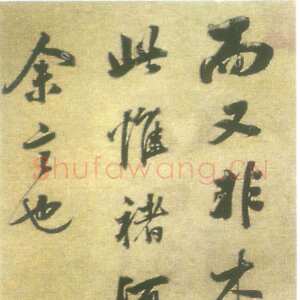 而又非木
此惟褚
余言也
Shufawang.CN